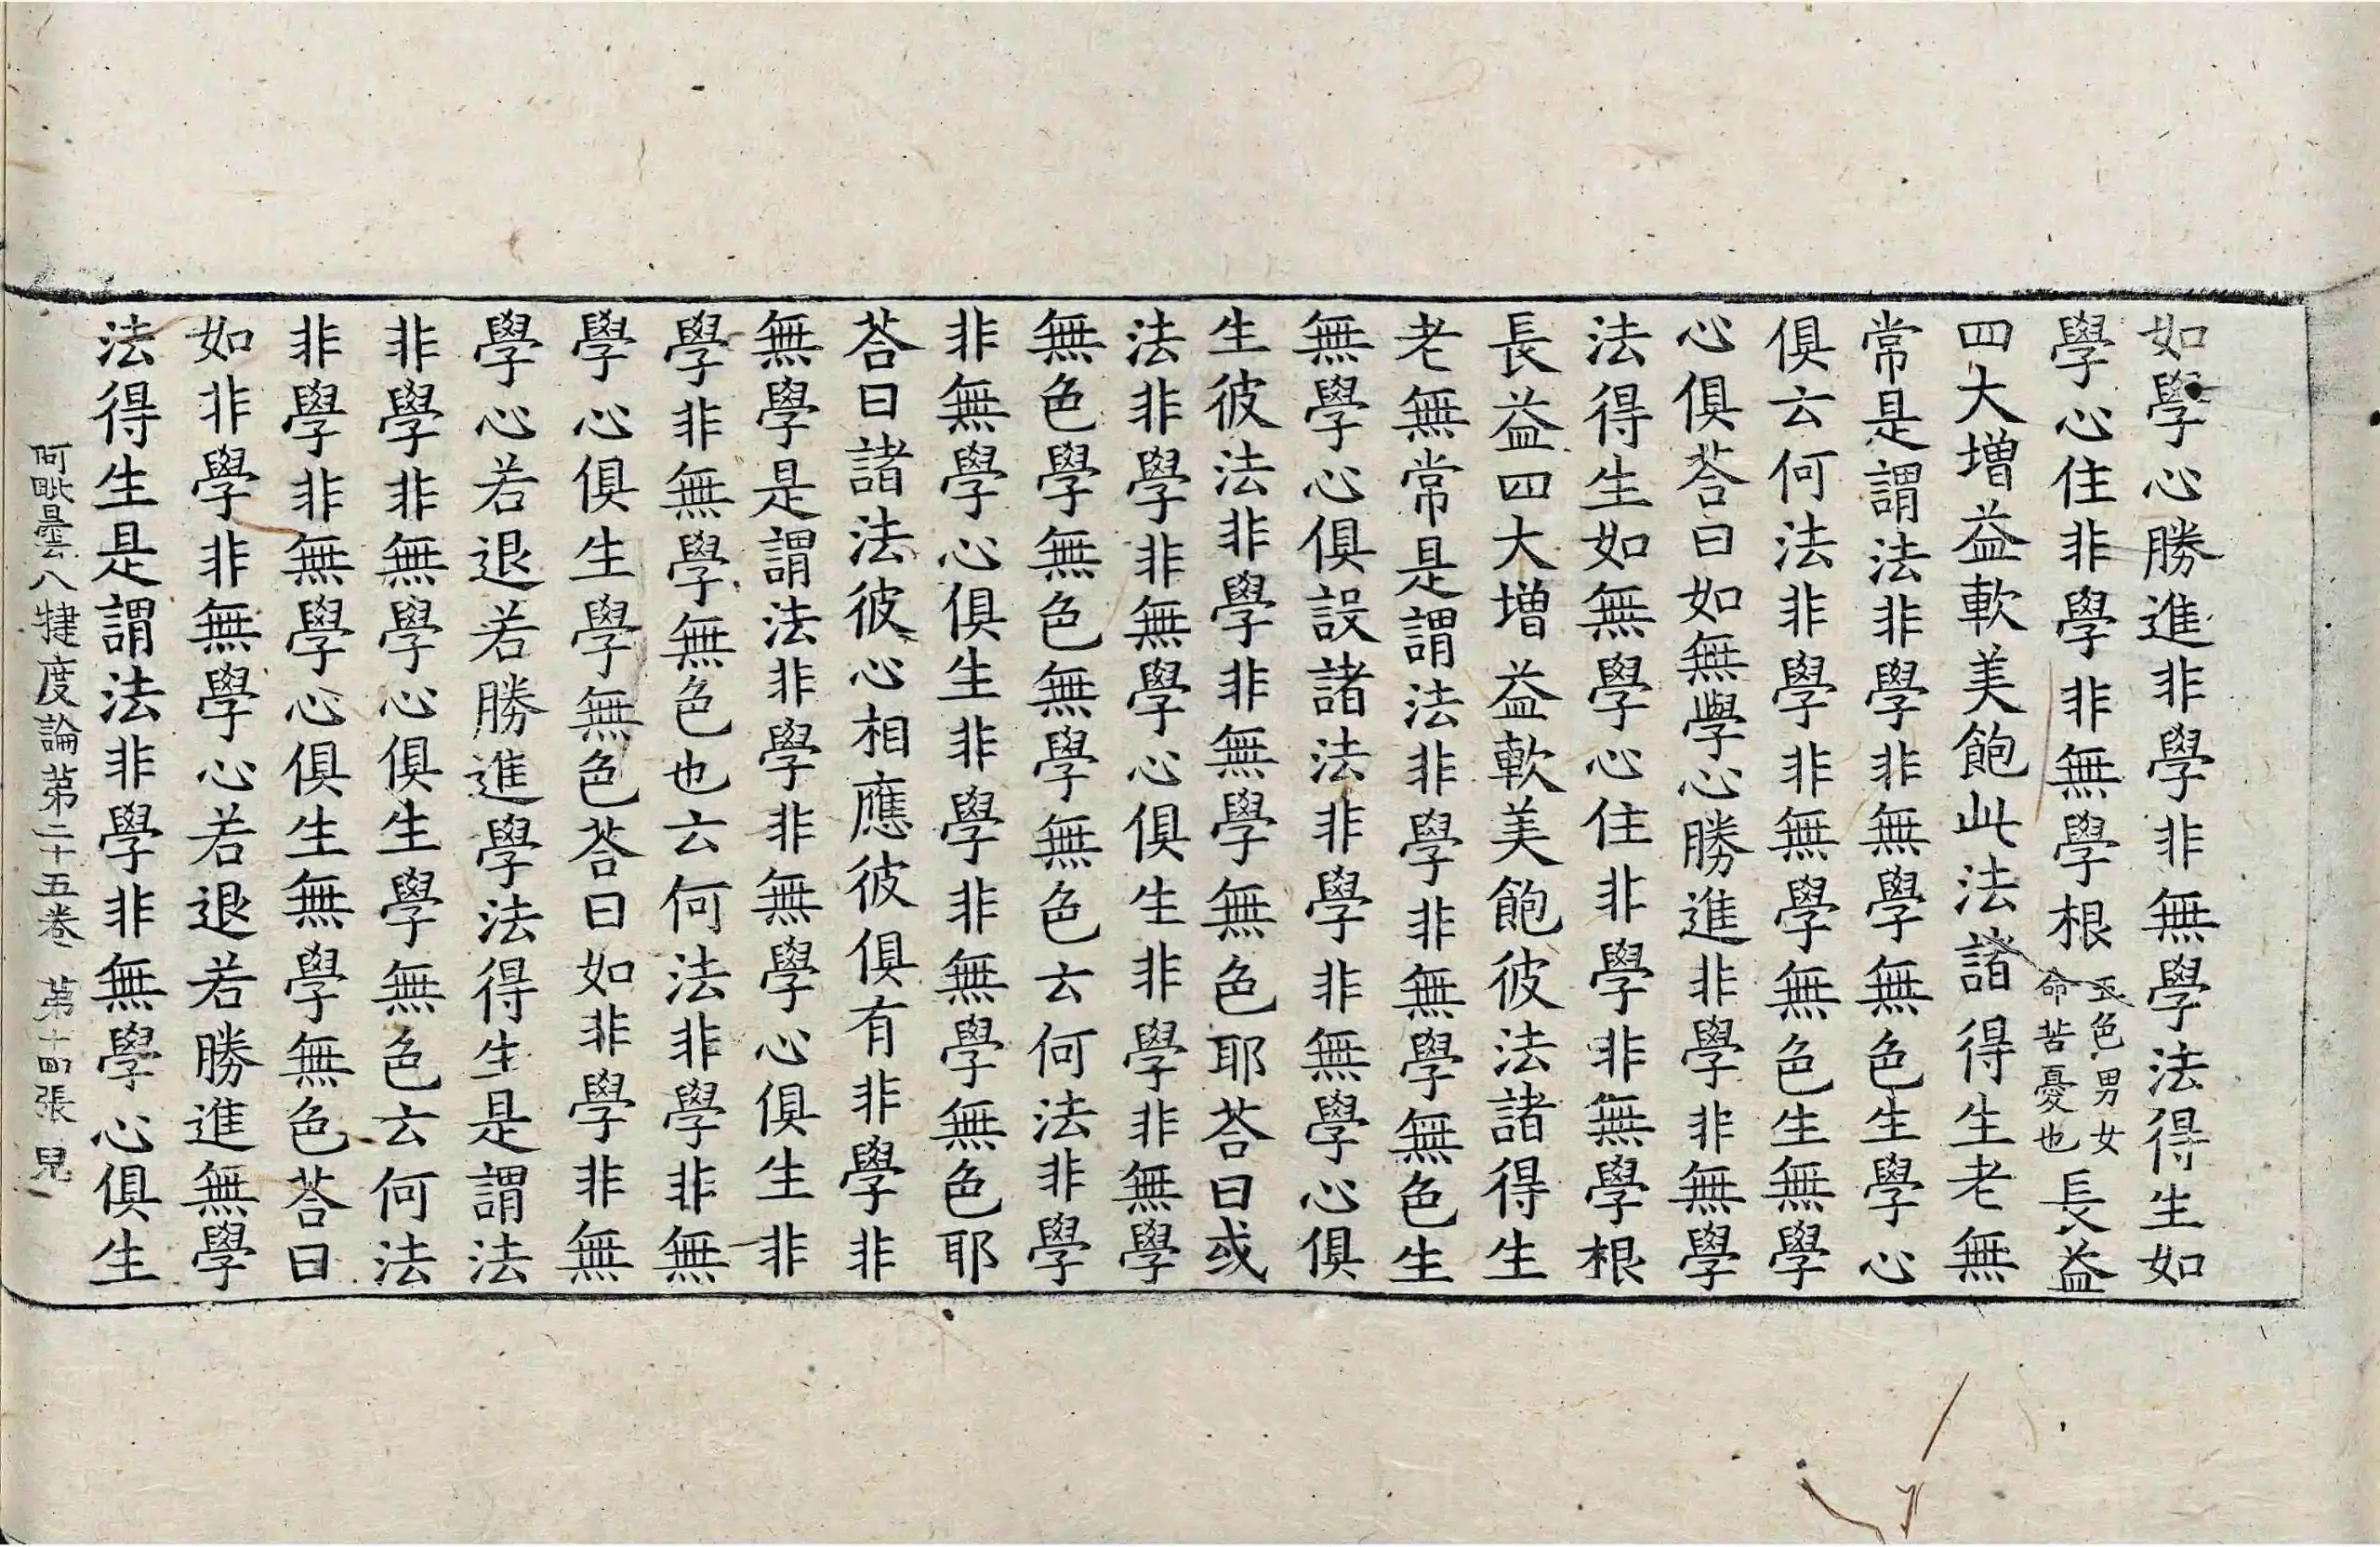 如學心勝進非學非無學法得生如
學心住非學非無學根五色男女命苦憂也長益
四大增益軟美飽此法諸得生老無
常是謂法非學非無學無色生學心
俱云何法非學非無學無色生無學
心俱荅曰如無學心勝進非學非無學
法得生如無學心住非學非無學根
長益四大增益軟美飽彼法諸得生
老無常是謂法非學非無學無色生
無學心俱設諸法非學非無學心俱
生彼法非學非無學無色耶荅曰或
法非學非無學心俱生非學非無學
無色學無色無學無色云何法非學
非無學心俱生非學非無學無色耶
荅曰諸法彼心相應彼俱有非學非
無學是謂法非學非無學心俱生非
學非無學無色也云何法非學非無
學心俱生學無色荅曰如非學非無
學心若退若勝進學法得生是謂法
非學非無學心俱生學無色云何法
非學非無學心俱生無學無色荅曰
如非學非無學心若退若勝進無學
法得生是謂法非學非無學心俱生
阿毗曇八犍度論第二十五卷 第十四張 兒